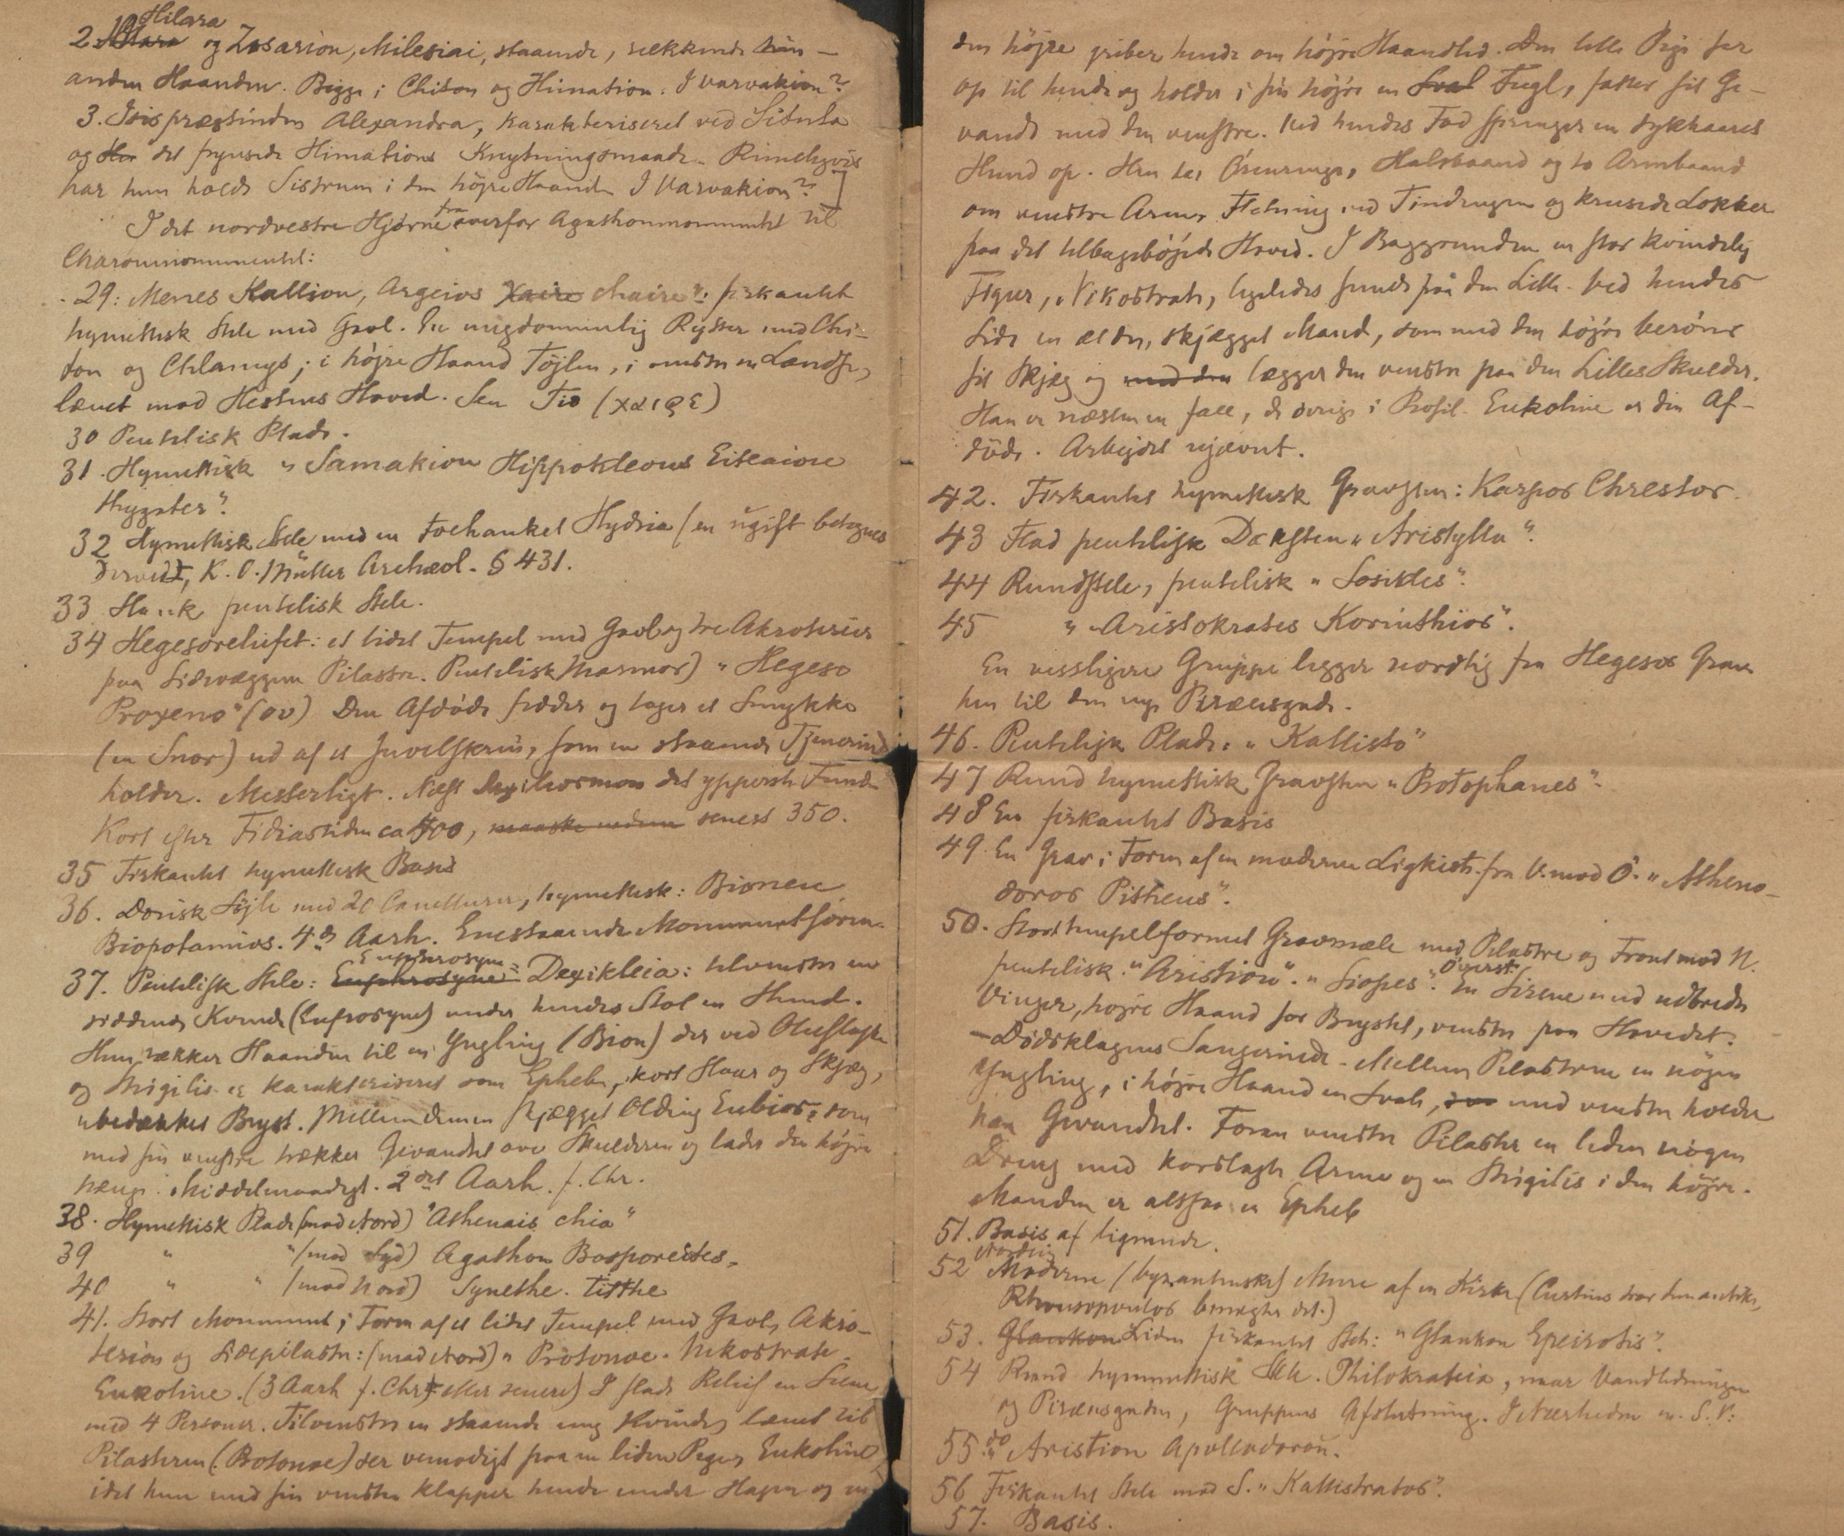 Hilara
2. og Zosarion, Milesiai, staaende, rækkende hin-
anden Haanden. Begge i Chiton og Himation. I Varvakion?
3. Isispræstinden Alexandra, karakteriseret ved Situla
og det frynsede Himations Knytningsmaade. Rimeligvis
har hun holdt Sistrum i den højre Haand. I Varvakion?]
I det nordvestre Hjørne fra overfor Agathonmonumentet til
Charonmonumentet:
29: Menes Kallion, Argeios chaire": firkantet
hymettisk Stele med Gavl. En ungdommelig Rytter med Chi-
ton og Chlamys; i højre Haand Tøjlen, i venstre en Landse,
lænet mod Hestens Hoved. Sen Tid (χαιρε)
30 Pentelisk Plade.
31. Hymettisk " Samakion Hippokleous Eiteaiou
thygater".
32 Hymettisk Stele med en tohanket Hydria (en ugift betegnes
derved, K. O. Müller Archæol. § 431.
33 Slank pentelisk Stele.
34 Hegesorelieffet: et lidet Tempel med Gavl og tre Akroterier
paa Sidevæggene Pilastre. Pentelisk Marmor) "Hegeso
Proxeno" (ov) Den Afdøde sidder og tager et Smykke
(en Snor) ud af et Juvelskrin, som en staaende Tjenerinde
holder. Mesterligt. Næst Dexileosmon det ypperste Fund.
Kort efter Fidiastiden ca 400, senest 350.
35 Firkantet hymettisk Basis
36. Dorisk Søjle med 20 Canellurer, hymettisk: Bionen
Biopotamios. 4de Aarh. Enestaaende Monumentform.
37. Pentelisk Stele: Euphrosyne = Dexikleia: tilvenstre en
siddende Kvinde (Eufrosyne) under hendes Stol en Hund.
Hun rækker Haanden til en Yngling (Bion) der ved Olieflaske
og Strigilis er karakteriseret som Epheb, kort Haar og Skjæg,
ubedækket Bryst. Mellem dem en skjægget Olding Eubios, som
med sin venstre trækker Gevandtet over Skulderen og lader den højre
hænge. Middelmaadigt. 2det Aarh. f. Chr.
38. Hymettisk Plade (mod Nord) "Athenais chia"
39 " " (mod Syd) Agathon Bosporeites.
40 " " (mod Nord) Synethe. titthe
41. Stort Monument i Form af et lidet Tempel med Gavl, Akro-
terion og Sidepilastre: (mod Nord) " Protonoe. Nikostrate.
Eukoline. (3 Aarh f. Chr. eller senere) I flade Relief en Scene
med 4 Personer. Tilvenstre en staaende ung Kvinde, lænet til
Pilasteren (Protonoe) ser vemodigt paa en liden Pige, Eukoline
idet hun med sin venstre klapper hende under Hagen og
den højre griber hende om højre Haandled. Den lille Pige ser
op til hende og holder i sin højre en Fugl, fatter sit Ge-
vandt med den venstre. Ved hendes Fod springer en tykhaaret
Hund op. Hun har Ørenringe, Halsbaand og to Armbaand
om venstre Arm, Fletning ved Tindingen og krusede Lokker
paa det tilbagebøjede Hoved. I Baggrunden en stor kvindelig
Figur, Nikostrate, ligeledes seende paa den Lille. Ved hendes
Side en ældre, skjægget Mand, som med den højre berører
sit Skjæg og lægger den venstre paa den Lilles Skulder.
Han er næsten en face, de øvrige i Profil. Eukoline er den Af-
døde. Arbejdet ujævnt.
42. Firkantet hymettisk Gravsten: Karpos Chrestos.
43 Flad pentelisk Dæksten "Aristylla".
44 Rundstele, pentelisk "Sosikles".
45 " "Aristokrates Korinthios".
En vestligere Gruppe ligger nordlig fra Hegesos Grav
hen til den nye Piræusgade.
46. Pentelisk Plade: "Kallisto"
47 Rund hymettisk Gravsten "Protophanes".
48 En firkantet Basis
49. En Grav i Form af en moderne Ligkiste fra V. mod Ø. "Atheno-
doros Pitheus".
50. Stort tempelformet Gravmæle med Pilastre og Front mod N.
pentelisk. "Aristion". "Siopes". Øverst En Sirene med udbredte
Vinger, højre Haand for Brystet, venstre paa Hovedet.
- Dødsklagens Sangerinde - Mellem Pilastrene en nøgen
Yngling, i højre Haand en Svale, med venstre holder
han Gevandtet. Foran venstre Pilaster en liden nøgen
Dreng med korslagte Arme og en Strigilis i den højre.
Manden er altsaa en Epheb
51. Basis af lignende.
52 Nordlig Moderne (byzantinske) Mure af en Kirke (Curtius tror den antik,
Rhousopoulos benægter det.)
53. Liden firkantet Stele: "Glaukon Epeirotis".
54 Rund hymettisk Stele. Philokrateia, nær Vandledningen
og Piræusgaden, Gruppens Afslutning. I Nærheden m. S.V:
55 do Aristion Apollodorou.
56 Firkantet Stele mod S. "Kallistratos".
57. Basis.